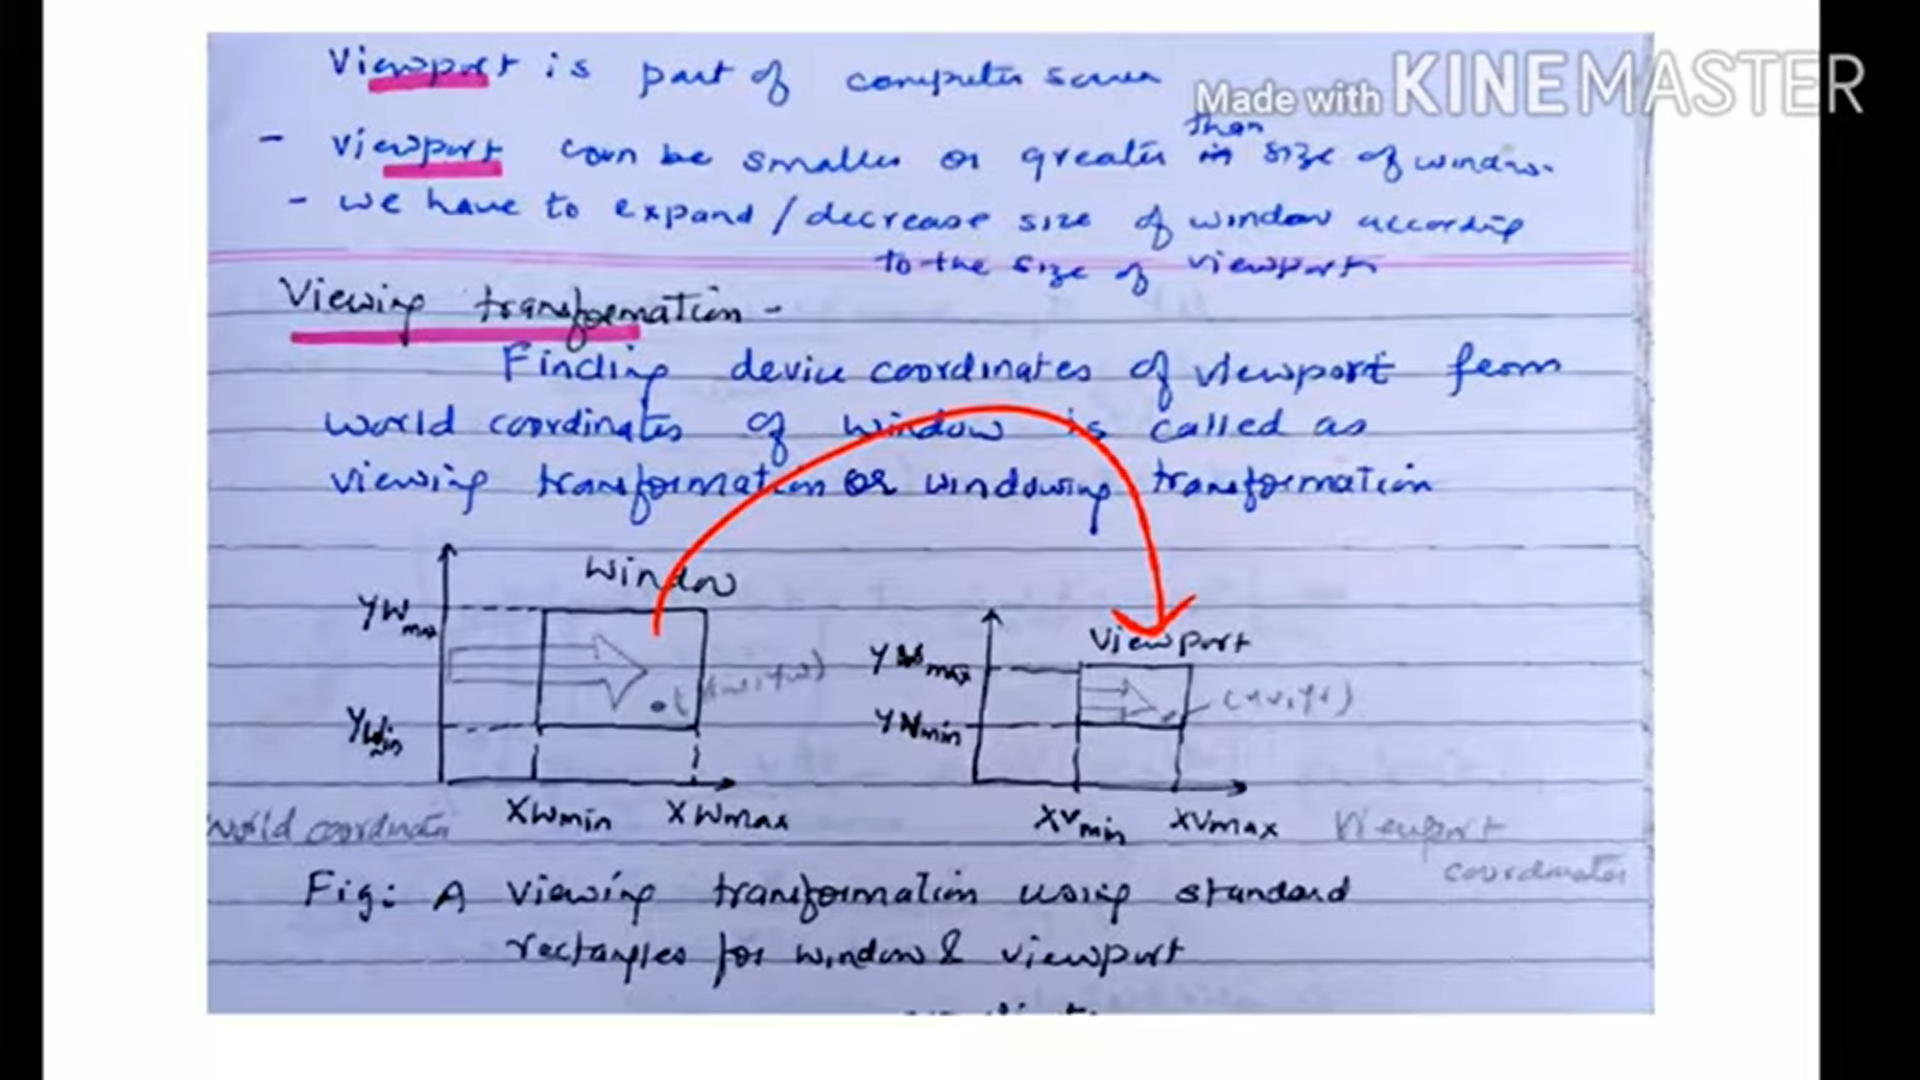 Viewport is part of computer screen
Made with KINEMASTER
than
- viewport can be smaller or greater in size of window.
- we have to expand / decrease size of window according
to the size of viewport
Viewing transformation -
Finding device coordinates of viewport from
world coordinates of window is called as
viewing transformation or windowing transformation
Window
YWmax
Viewport
max
(xv, yv)
YWmin
YVmin
XWmin XWmax
XVmin XVmax
World coordinate
Viewport
coordinates
Fig: A viewing transformation using standard
rectangles for window & viewport